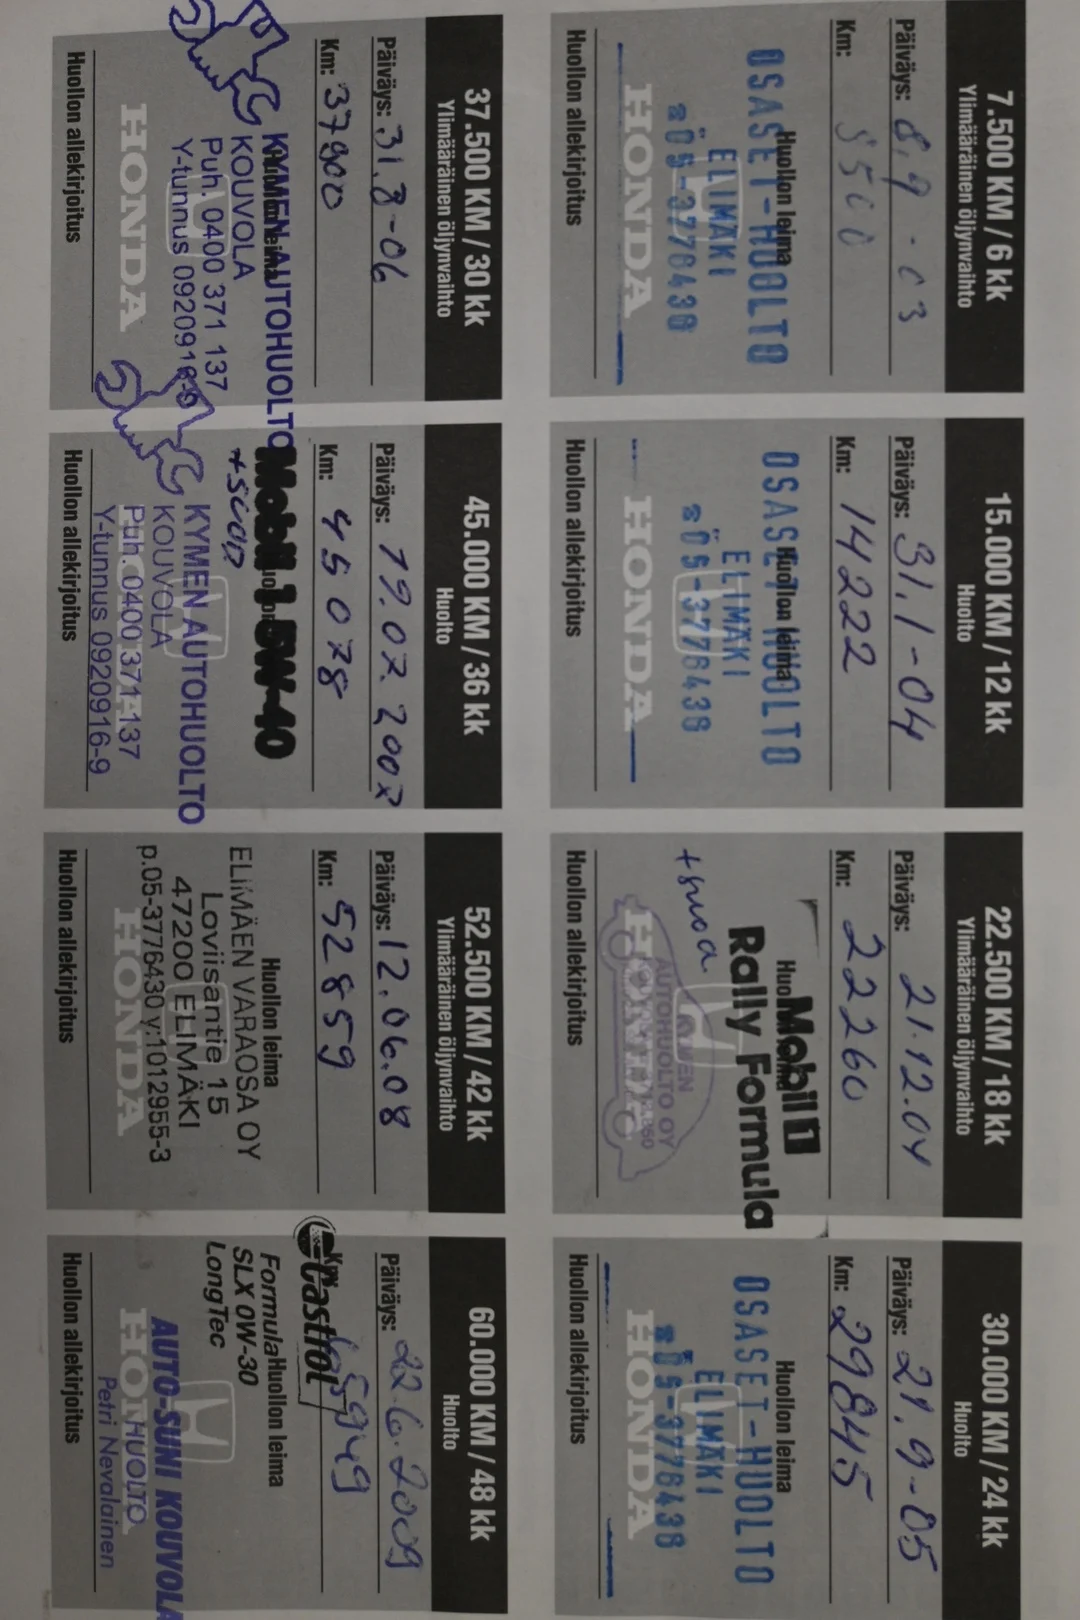 7.500 KM / 6 kk
Ylimääräinen öljynvaihto
Päiväys: 8.9-03
Km: 5500
Huollon leima
OSASET-HUOLTO
ELIMÄKI
☎ 05-3776436
HONDA
Huollon allekirjoitus
15.000 KM / 12 kk
Huolto
Päiväys: 31.1-04
Km: 14222
Huollon leima
OSASET-HUOLTO
ELIMÄKI
☎ 05-3776436
HONDA
Huollon allekirjoitus
22.500 KM / 18 kk
Ylimääräinen öljynvaihto
Päiväys: 21.12.04
Km: 22260
Mobil 1
Rally Formula
+suoa
KYMEN
AUTOHUOLTO OY
HONDA
Huollon allekirjoitus
30.000 KM / 24 kk
Huolto
Päiväys: 21.9-05
Km: 29845
Huollon leima
OSASET-HUOLTO
ELIMÄKI
☎ 05-3776436
HONDA
Huollon allekirjoitus
37.500 KM / 30 kk
Ylimääräinen öljynvaihto
Päiväys: 31.8-06
Km: 37900
KYMEN AUTOHUOLTO
KOUVOLA
Puh. 0400 371 137
Y-tunnus 0920916-9
HONDA
Huollon allekirjoitus
45.000 KM / 36 kk
Huolto
Päiväys: 19.07.2007
Km: 45078
Mobil 1 5W-40
+suod
KYMEN AUTOHUOLTO
KOUVOLA
Puh. 0400 371 137
Y-tunnus 0920916-9
Huollon allekirjoitus
52.500 KM / 42 kk
Ylimääräinen öljynvaihto
Päiväys: 12.06.08
Km: 52859
Huollon leima
ELIMÄEN VARAOSA OY
Loviisantie 15
47200 ELIMÄKI
p.05-3776430 y:1012955-3
HONDA
Huollon allekirjoitus
60.000 KM / 48 kk
Huolto
Päiväys: 22.6.2009
Castrol
Formula
Huollon leima
SLX 0W-30
LongTec
AUTO-SUNI KOUVOLA
HUOLTO
HONDA
Petri Nevalainen
Huollon allekirjoitus